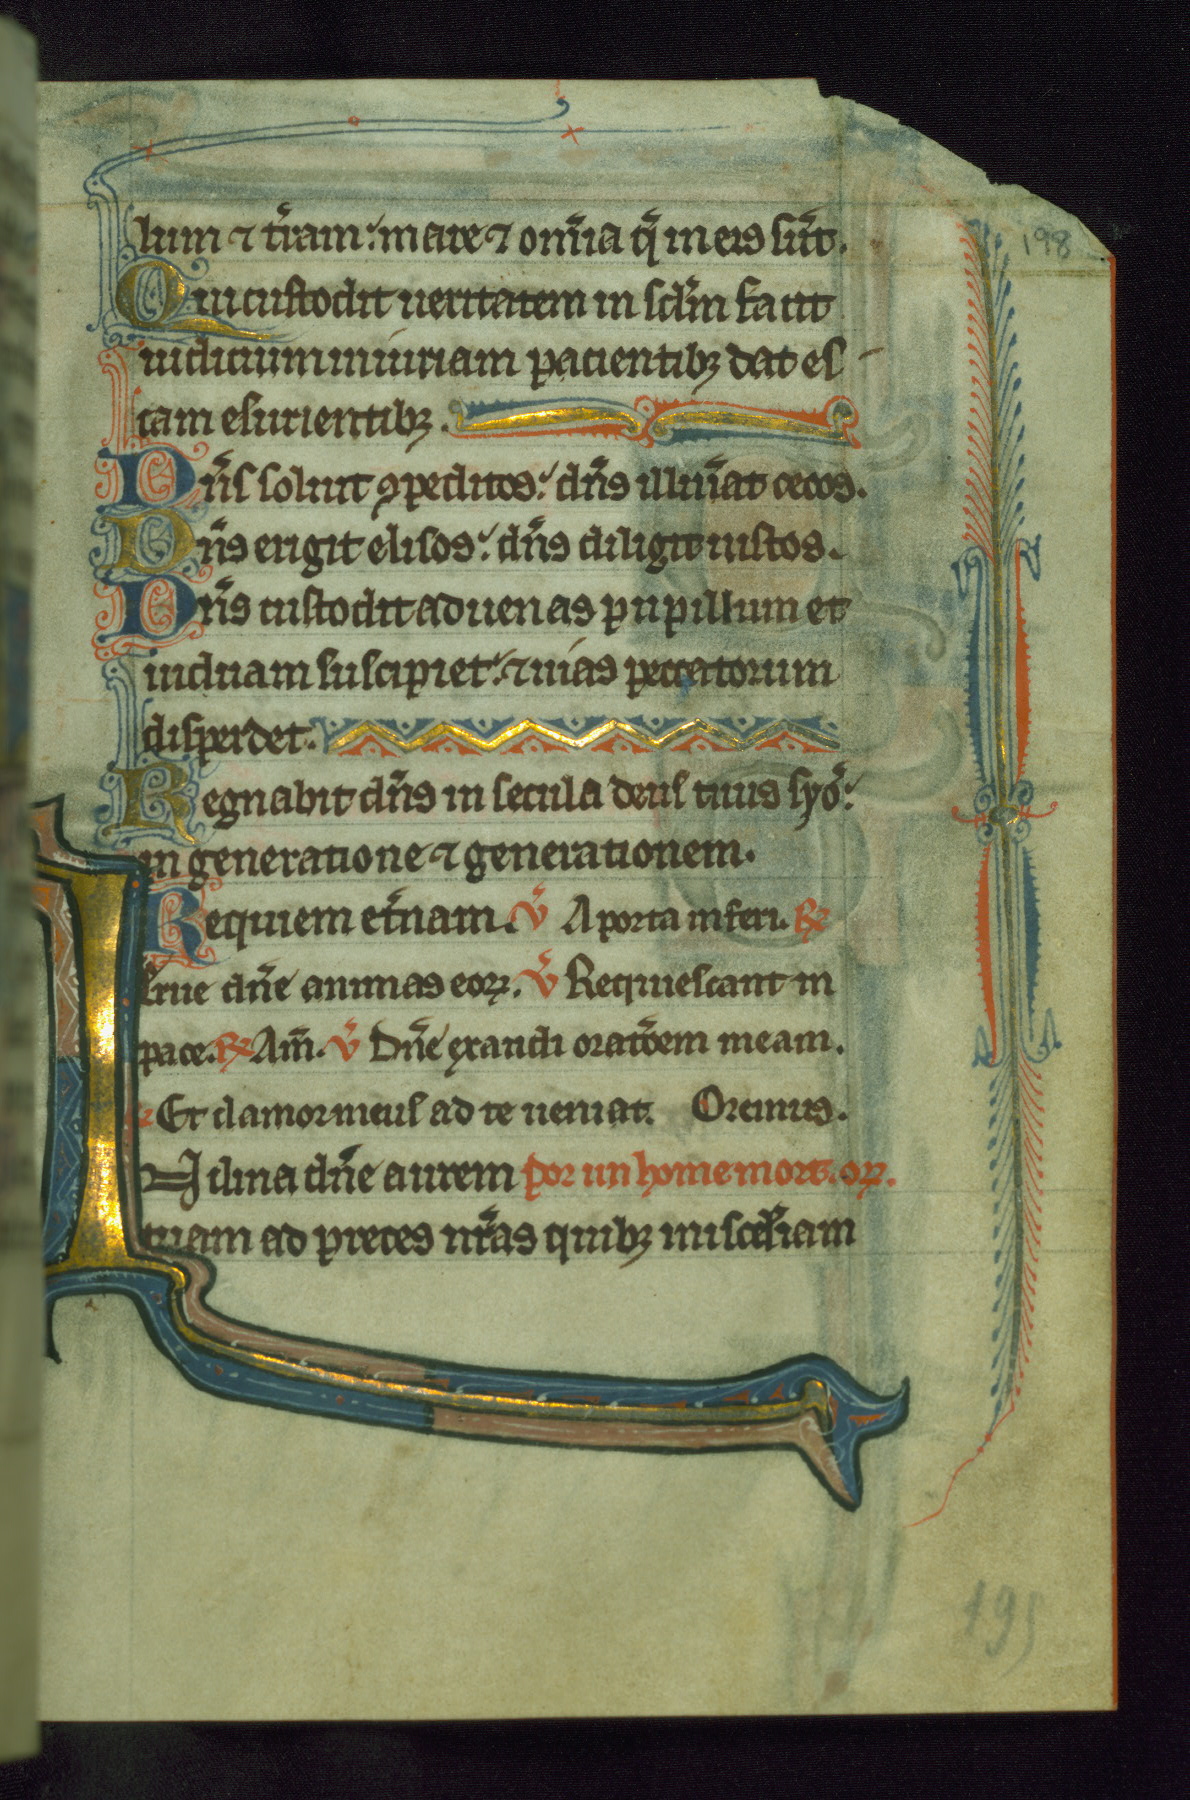 198
lum ⁊ t̃ram: mare ⁊ om̃ia q̃ in eis su̅t.
Qui custodit ueritatem in scl̃m facit
iudicium iniuriam pacientibꝫ dat es
cam esurientibꝫ.
Dñs soluit ꝯpeditos: dñs illuĩat cecos.
Dñs erigit elisos: dñs diligit iustos.
Dñs custodit aduenas pupillum et
uiduam suscipiet: ⁊ uias peccatorum
disperdet.
Regnabit dñs in secula deus tuus syõ:
in generatione ⁊ generationem.
Requiem et̃nam. ℣ A porta inferi. ℟
Erue dñe animas eoꝝ. ℣ Requiescant in
pace. ℟ Am̃. ℣ Dñe exaudi orat̃oem meam.
℟ Et clamor meus ad te ueniat. Oremus.
Inclina dñe aurem por un home mort. oꝝ.
tuam ad preces nr̃as quibꝫ misc̃e͂iam
195